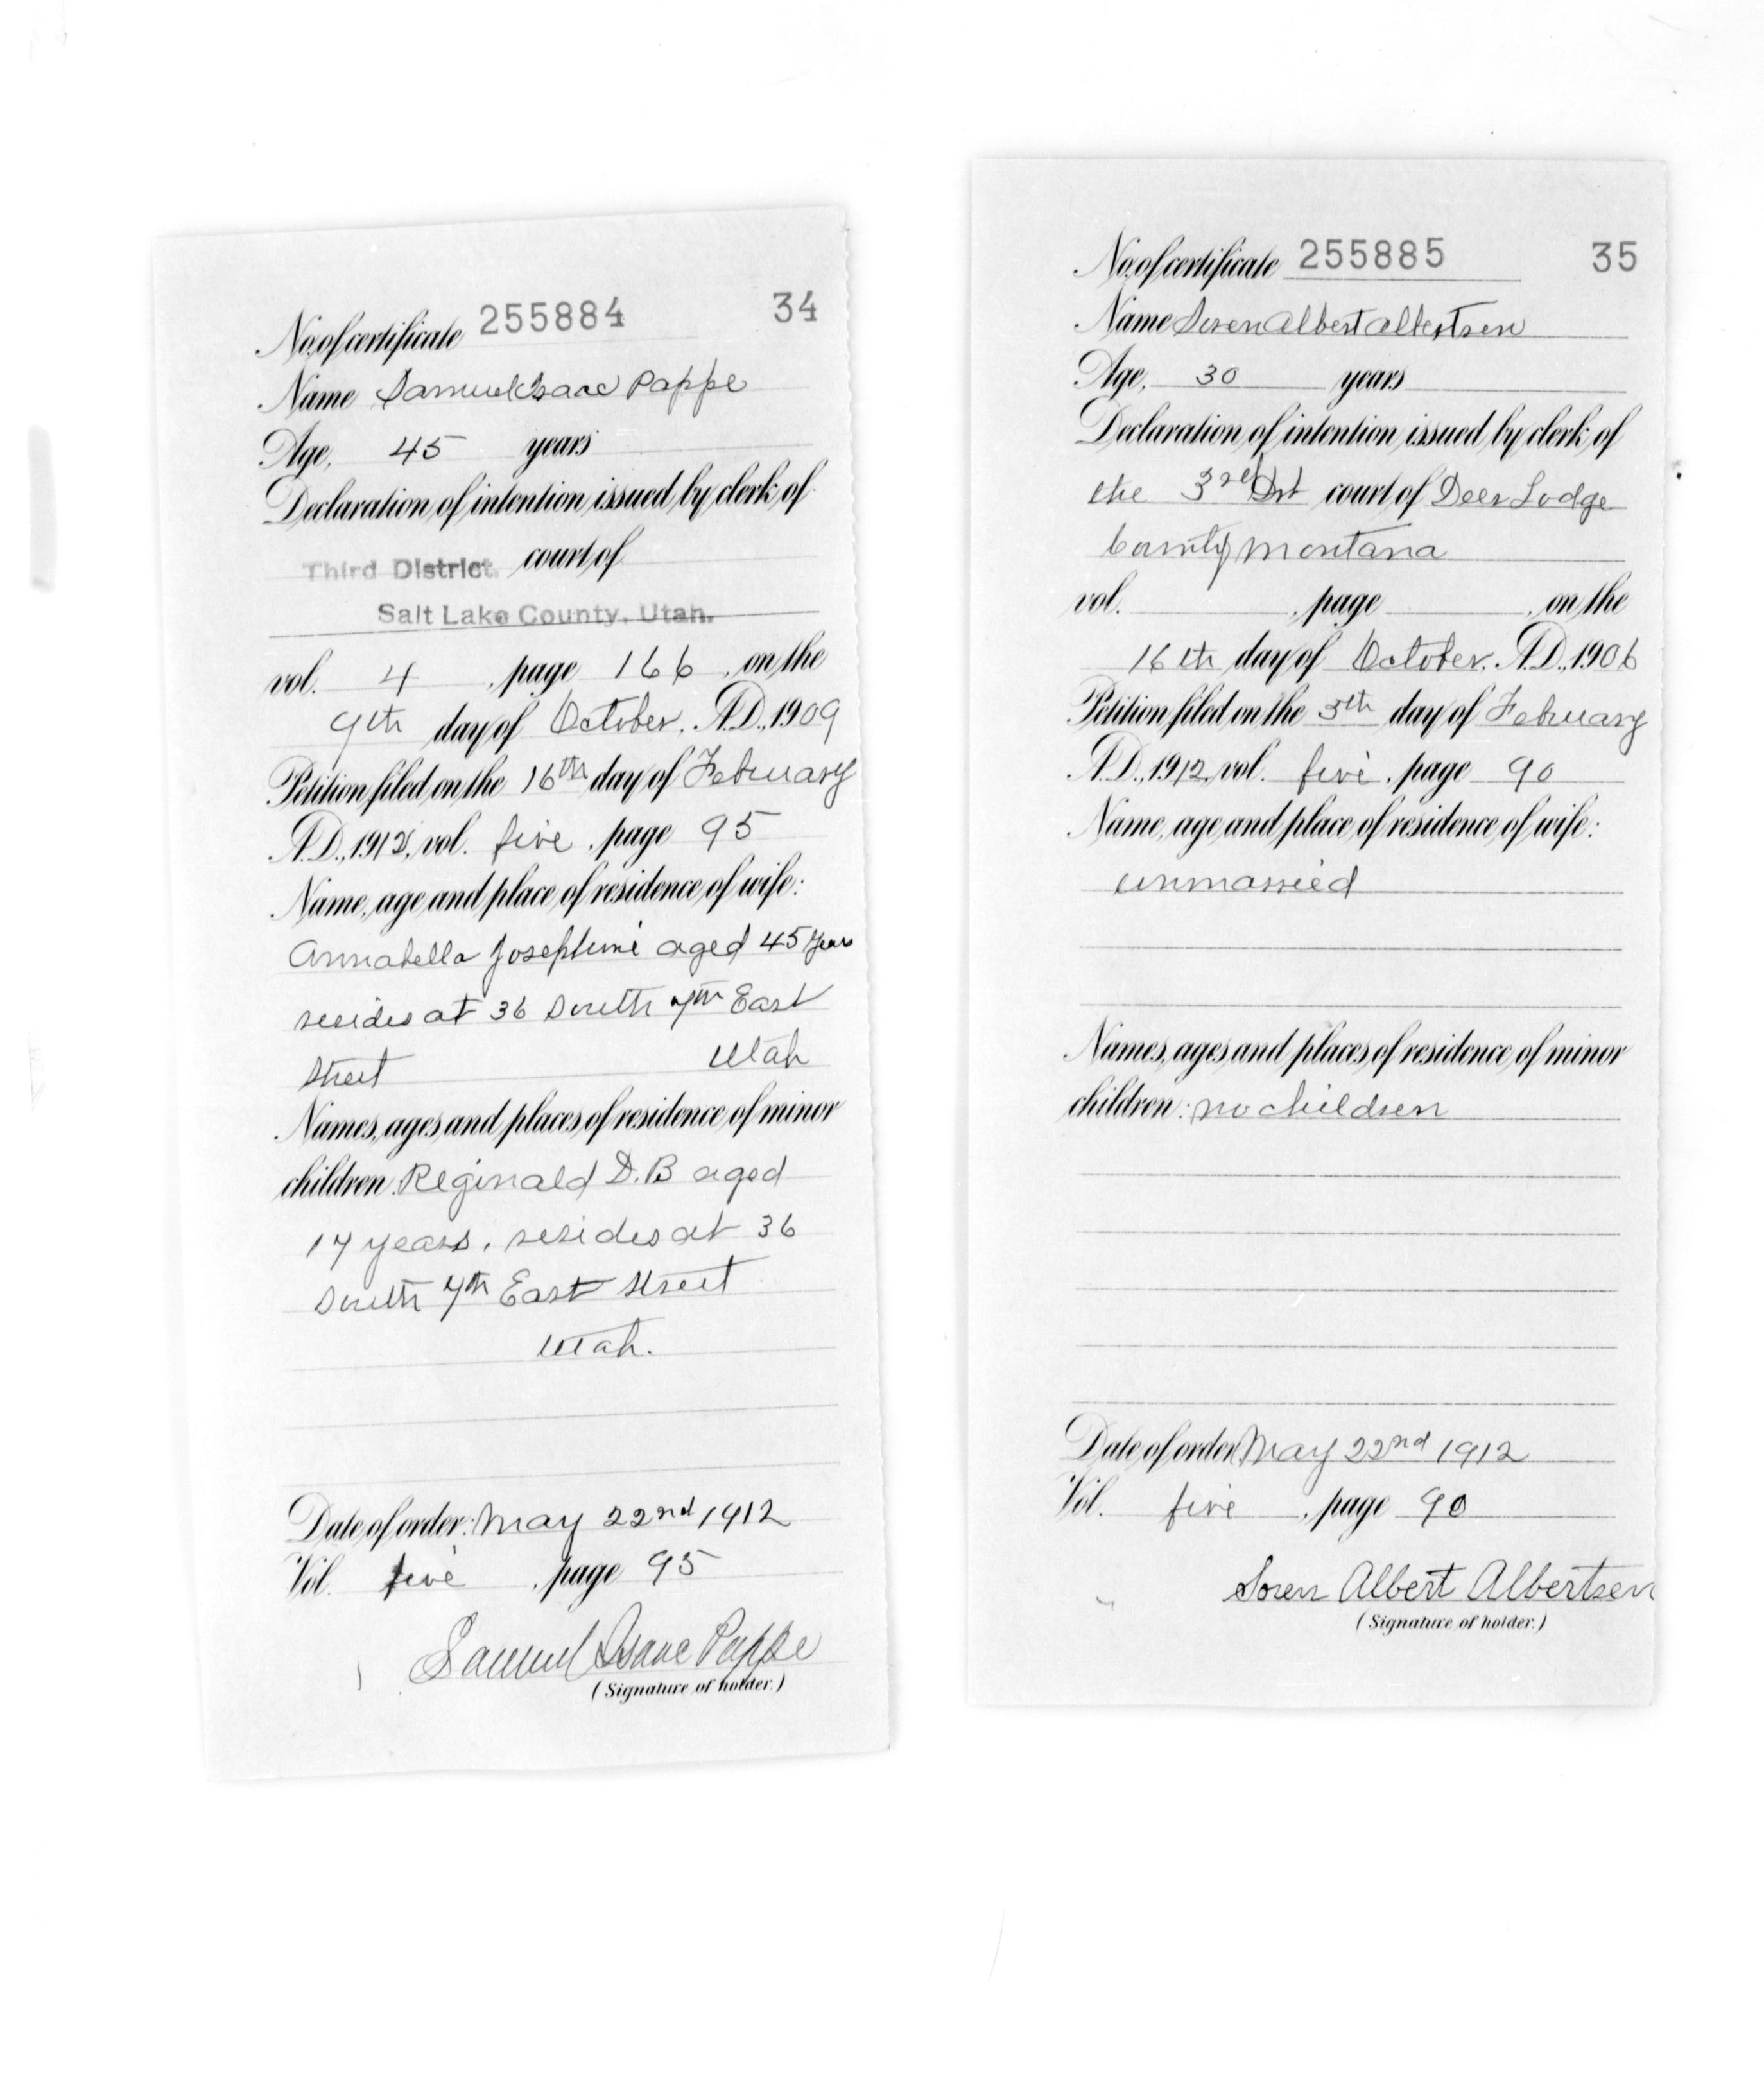 No. of certificate 255884 34
Name Samuel Isaac Pappe
Age, 45 years
Declaration of intention issued by clerk of
Third District court of
Salt Lake County, Utah.
vol. 4, page 166, on the
9th day of October, A.D., 1909
Petition filed on the 16th day of February
A.D., 1912, vol. five, page 95
Name, age and place of residence of wife:
Annabella Josephine aged 45 years
resides at 36 South 7th East
Street Utah
Names, ages and places of residence of minor
children: Reginald D.B aged
17 years, resides at 36
South 7th East Street
Utah.
Date of order: May 22nd 1912
Vol. five, page 95
Samuel Isaac Pappe
(Signature of holder.)
No. of certificate 255885 35
Name Soren Albert Albertsen
Age, 30 years
Declaration of intention issued by clerk of
the 3rd Dist court of Deer Lodge
County Montana
vol. , page , on the
16th day of October, A.D., 1906
Petition filed on the 5th day of February
A.D., 1912, vol. five, page 90
Name, age and place of residence of wife:
unmarried
Names, ages and places of residence of minor
children: no children
Date of order: May 22nd 1912
Vol. five, page 90
Soren Albert Albertsen
(Signature of holder.)